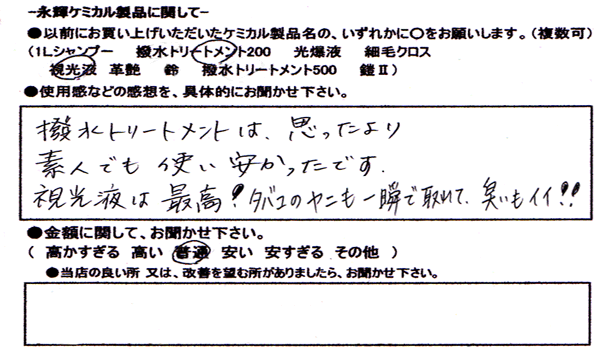 -永輝ケミカル製品に関して-
●以前にお買い上げいただいたケミカル製品名の、いずれかに〇をお願いします。(複数可)
(1Lシャンプー 撥水トリートメント200 光爆液 細毛クロス
視光液 革艶 鈴 撥水トリートメント500 鎧Ⅱ)
●使用感などの感想を、具体的にお聞かせ下さい。
撥水トリートメントは、思ったより
素人でも使い安かったです.
視光液は最高!タバコのヤニも一瞬で取れて、臭いもイイ!!
●金額に関して、お聞かせ下さい。
( 高かすぎる 高い 普通 安い 安すぎる その他 )
●当店の良い所 又は、改善を望む所がありましたら、お聞かせ下さい。